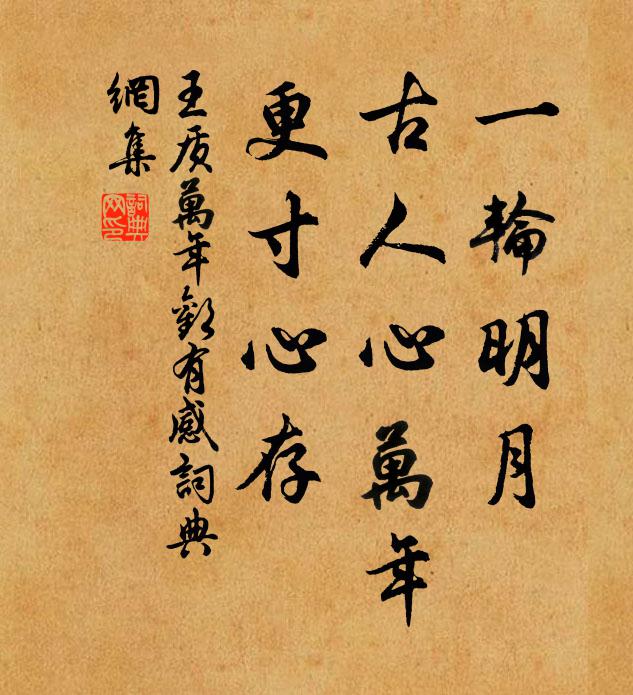 一輪明月
古人心萬年
更寸心存
王质萬年歡有感詞典
網集
詞典網印